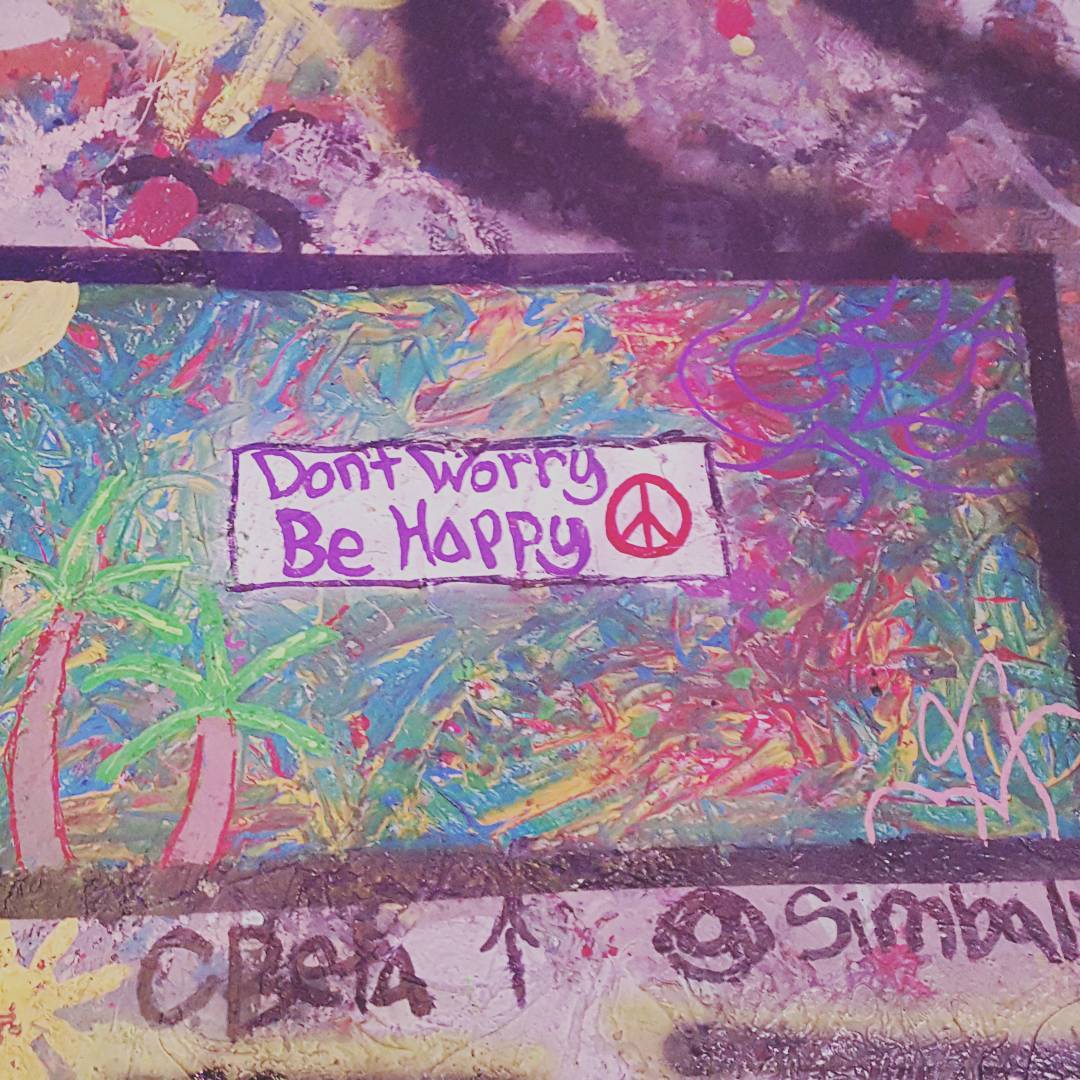 Dont Worry
Be Happy
CBeta @Simbal